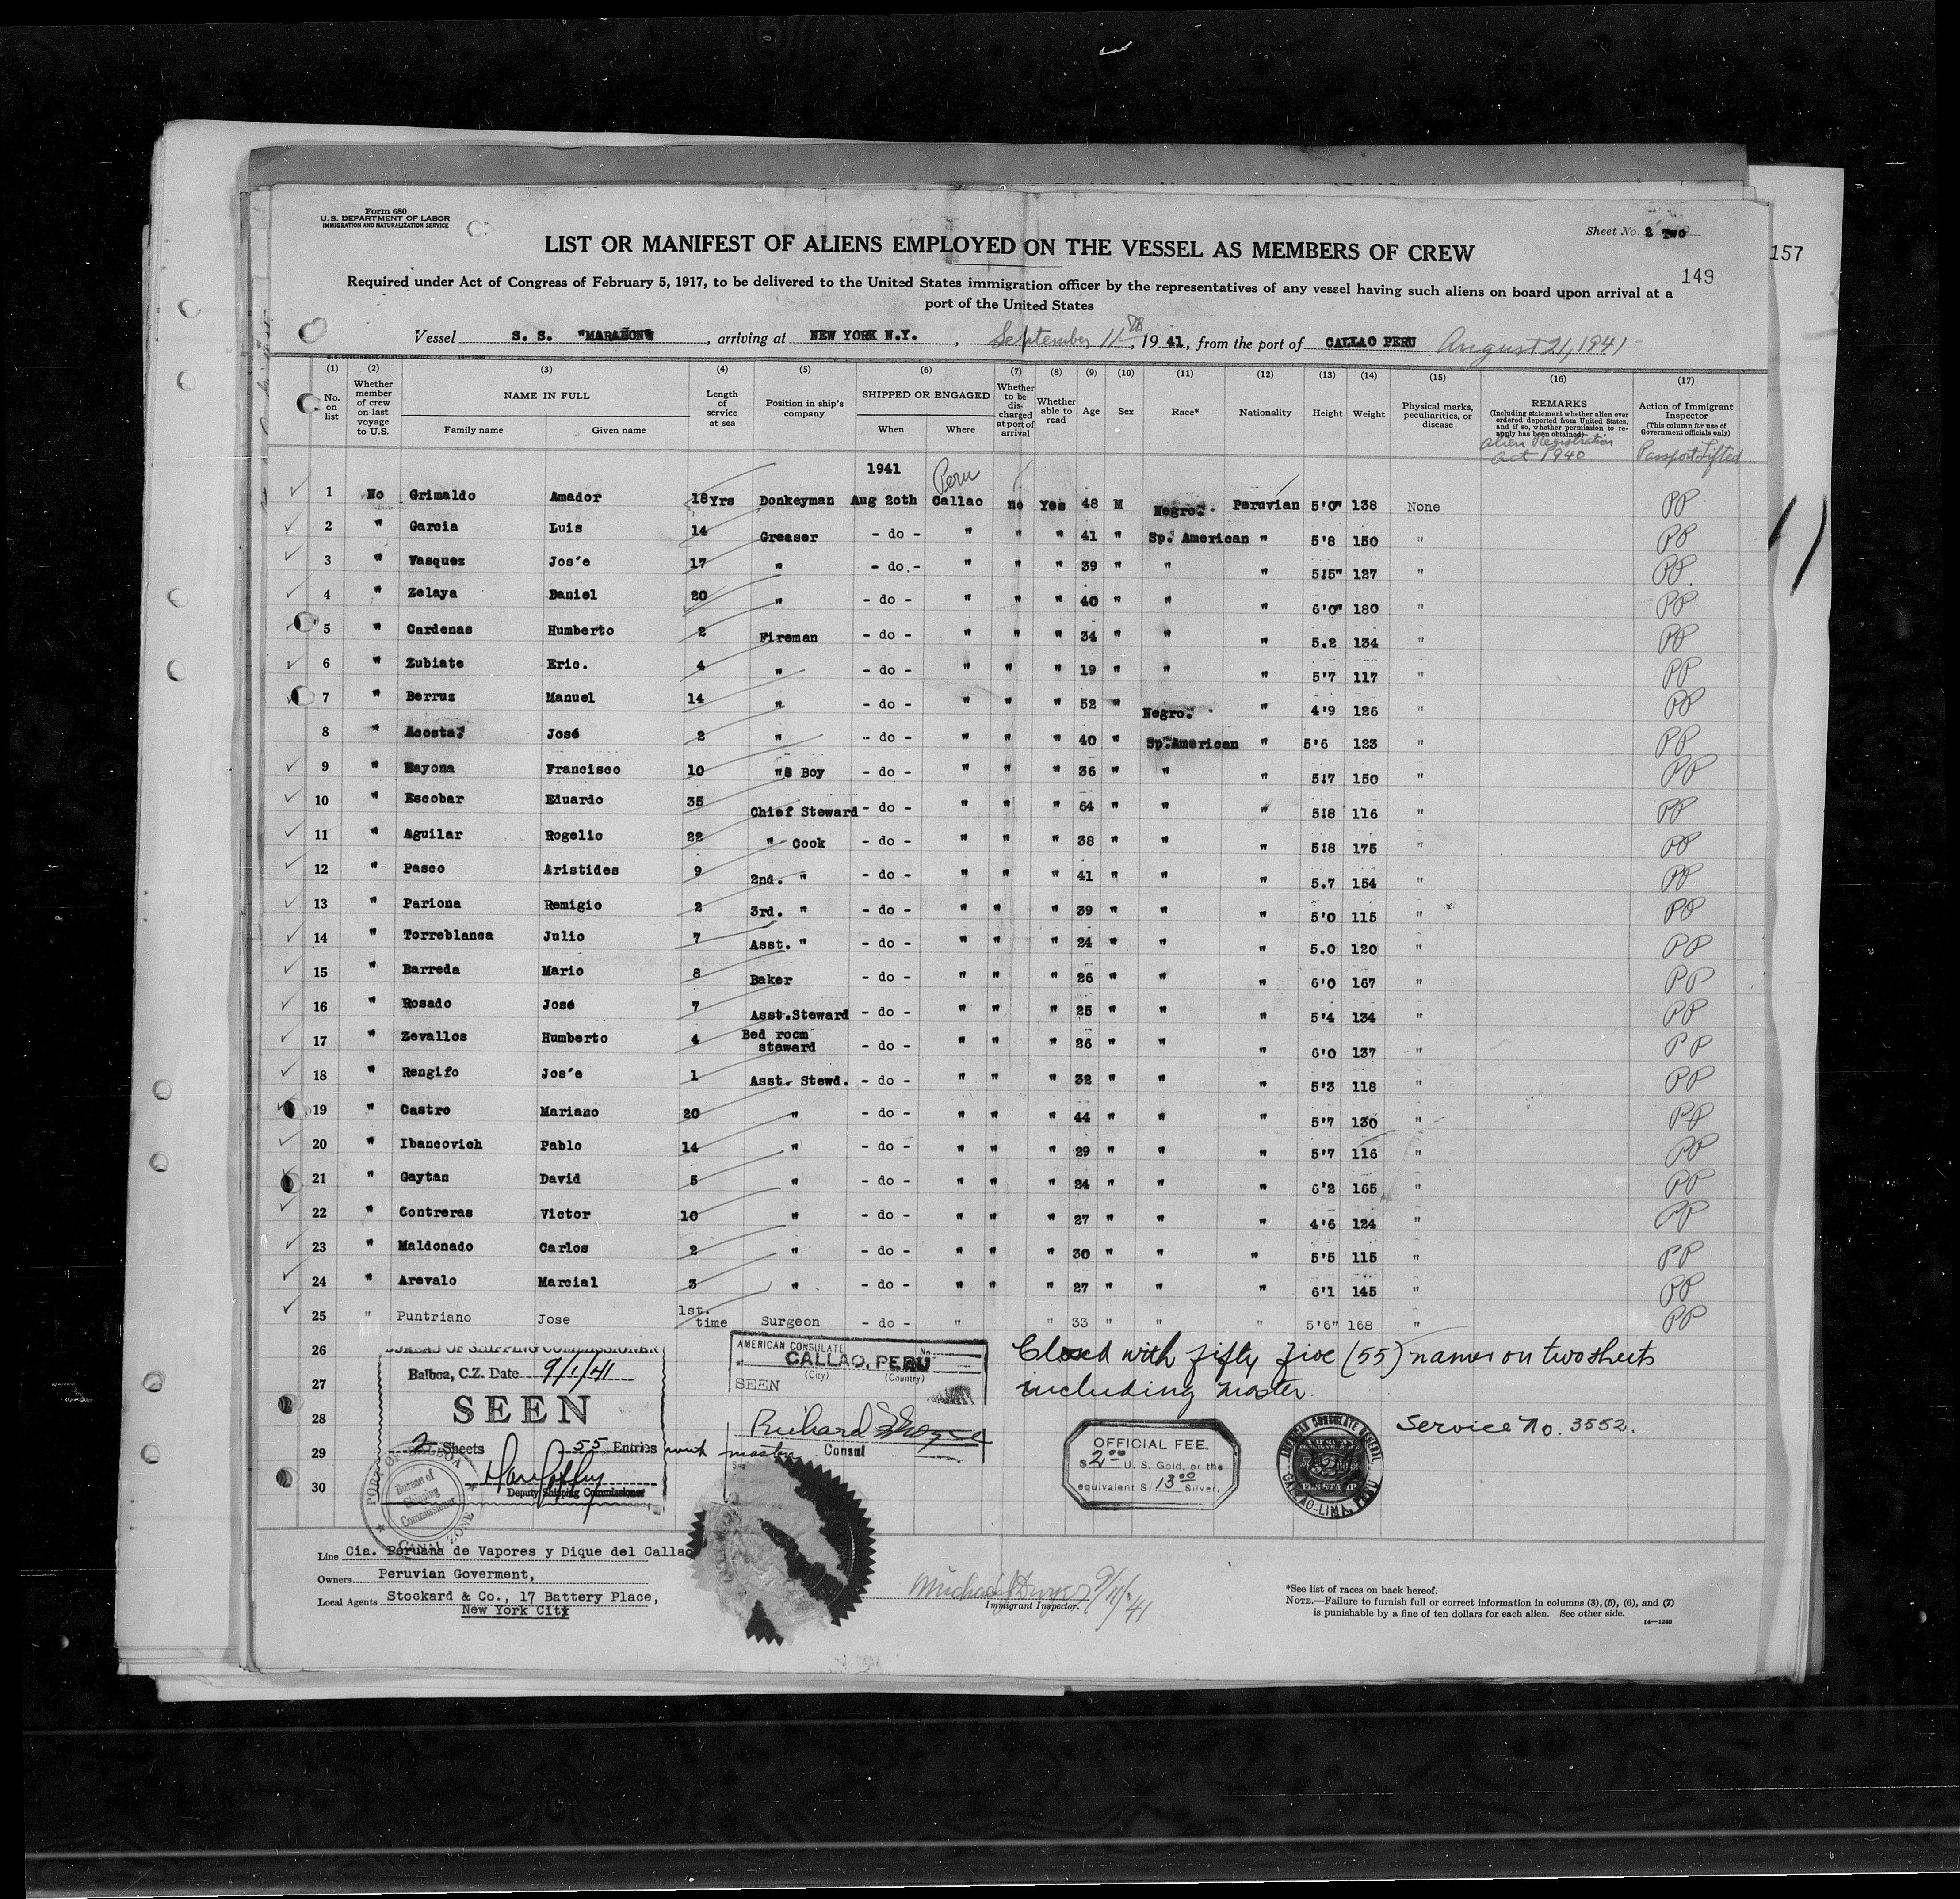 Form 680
U.S. DEPARTMENT OF LABOR
IMMIGRATION AND NATURALIZATION SERVICE
Sheet No. 2 Two
157
LIST OR MANIFEST OF ALIENS EMPLOYED ON THE VESSEL AS MEMBERS OF CREW
149
Required under Act of Congress of February 5, 1917, to be delivered to the United States immigration officer by the representatives of any vessel having such aliens on board upon arrival at a
port of the United States
Vessel S. S. "MARAÑON", arriving at NEW YORK N.Y., September 11th, 1941, from the port of CALLAO PERU August 21, 1941
(1) (2) (3) (4) (5) (6) (7) (8) (9) (10) (11) (12) (13) (14) (15) (16) (17)
No. on list
Whether member of crew on last voyage to U.S.
NAME IN FULL
Family name Given name
Length of service at sea
Position in ship's company
SHIPPED OR ENGAGED
When Where
Whether to be discharged at port of arrival
Whether able to read
Age
Sex
Race*
Nationality
Height
Weight
Physical marks, peculiarities, or disease
REMARKS
(Including statement whether alien ever ordered deported from United States, and if so, whether permission to reapply has been obtained)
Alien Registration Act 1940
Action of Immigrant Inspector
(This column for use of Government officials only)
Passport Lifted
1941 Peru
1 No Grimaldo Amador 18Yrs Donkeyman Aug 20th Callao no Yes 48 M Negro. Peruvian 5'0" 138 None PP
2 " Garcia Luis 14 Greaser - do - " " " 41 " Sp. American " 5'8 150 " PP
3 " Vasquez Jos'e 17 " - do.- " " " 39 " " " 5:5" 127 " PP.
4 " Zelaya Daniel 20 " - do - " " " 40 " " " 6'0" 180 " PP
5 " Cardenas Humberto 2 Fireman - do - " " " 34 " " " 5.2 134 " PP
6 " Zubiate Eric. 4 " - do - " " " 19 " " " 5'7 117 " PP
7 " Berruz Manuel 14 " - do - " " " 52 " Negro. " 4'9 126 " PP
8 " Acosta. José 2 " - do - " " " 40 " Sp.American " 5'6 123 " PP
9 " Bayona Francisco 10 "s Boy - do - " " " 36 " " " 5:7 150 " PP
10 " Escobar Eduardo 35 Chief Steward - do - " " " 64 " " " 5:8 116 " PP
11 " Aguilar Rogelio 22 " Cook - do - " " " 38 " " " 5:8 175 " PP
12 " Pasco Aristides 9 2nd. " - do - " " " 41 " " " 5.7 154 " PP
13 " Pariona Remigio 2 3rd. " - do - " " " 39 " " " 5'0 115 " PP
14 " Torreblanca Julio 7 Asst. " - do - " " " 24 " " " 5.0 120 " PP
15 " Barreda Mario 8 Baker - do - " " " 26 " " " 6'0 167 " PP
16 " Rosado José 7 Asst.Steward - do - " " " 25 " " " 5'4 134 " PP
17 " Zevallos Humberto 4 Bed room steward - do - " " " 26 " " " 6'0 137 " PP
18 " Rengifo Jos'e 1 Asst. Stewd. - do - " " " 32 " " " 5'3 118 " PP
19 " Castro Mariano 20 " - do - " " " 44 " " " 5'7 130 " PP
20 " Ibancovich Pablo 14 " - do - " " " 29 " " " 5'7 116 " PP
21 " Gaytan David 5 " - do - " " " 24 " " " 6'2 165 " PP
22 " Contreras Victor 10 " - do - " " " 27 " " " 4'6 124 " PP
23 " Maldonado Carlos 2 " - do - " " " 30 " " " 5'5 115 " PP
24 " Arevalo Marcial 3 " - do - " " " 27 " " " 6'1 145 " PP
25 " Puntriano Jose 1st. time Surgeon - do - " " 33 " " " 5'6" 168 " PP
26
27
28
29
30
BUREAU OF SHIPPING COMMISSIONER
Balboa, C.Z. Date 9/1/41
SEEN
2 Sheets 55 Entries with master
Deputy Shipping Commissioner
PORT OF BALBOA
Bureau of Shipping Commissioner
CANAL ZONE
AMERICAN CONSULATE
No.
CALLAO, PERU
(City) (Country)
SEEN
Richard
Consul
Closed with fifty five (55) names on two sheets
including master.
Service No. 3552.
OFFICIAL FEE.
$2.00 U. S. Gold, or the
equivalent S/ 13.00 Silver.
AMERICAN CONSULATE GENERAL
CALLAO-LIMA, PERU
Line Cia. Peruana de Vapores y Dique del Callao
Owners Peruvian Goverment,
Local Agents Stockard & Co., 17 Battery Place,
New York City
Michael J Dwyer 9/11/41
Immigrant Inspector.
*See list of races on back hereof.
NOTE.—Failure to furnish full or correct information in columns (3), (5), (6), and (7)
is punishable by a fine of ten dollars for each alien. See other side.
14—1240